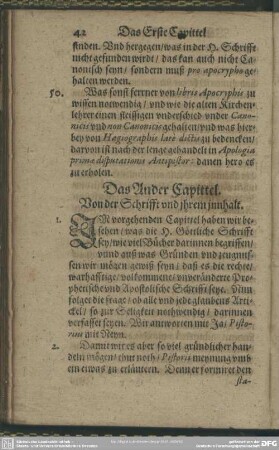 42 Das Erste Capittel
finden. Vnd hergegen/was in der H. Schrifft
nicht gefunden wirdt/ das kan auch nicht Ca-
nonisch seyn/ sondern muß pro apocrypho ge-
halten werden.
50. Was sonst ferrner von libris Apocryphis zu
wissen notwendig/ vnd wie die alten Kirchen-
lehrer einen fleissigen vnderschied vnder Cano-
nicis vnd non Canonicis gehalten/ vnd was hier-
bey von Hagiographis late dictis zu bedencken/
darvon ist nach der lenge gehandelt in Apologia
primæ disputationis Antipistor: danen hero es
zu erholen.
Das Ander Capittel.
Von der Schrifft vnd jhrem jnnhalt.
1. IM vorgehenden Capittel haben wir be-
sehen/ was die H. Göttliche Schrifft
sey/ wie viel Bücher darinnen begriffen/
vnnd auß was Gründen vnd zeugnus-
sen wir mögen gewiß seyn/ daß es die rechte/
warhafftige/ volkommene/ vnveränderte Pro-
phetische vnd Apostolische Schrifft seye. Nun
folget die frage/ ob alle vnd jede glaubens Arti-
ckel/ so zur Seligkeit nothwendig/ darinnen
verfasset seyen. Wir antworten mit Ja: Pisto-
rius mit Neyn.
2. Damit wir es aber so viel gründlicher han-
deln mögen/ thut noth/ Pistorii meynung vmb
ein etwas zu erläutern. Denn er formiret den
sta-